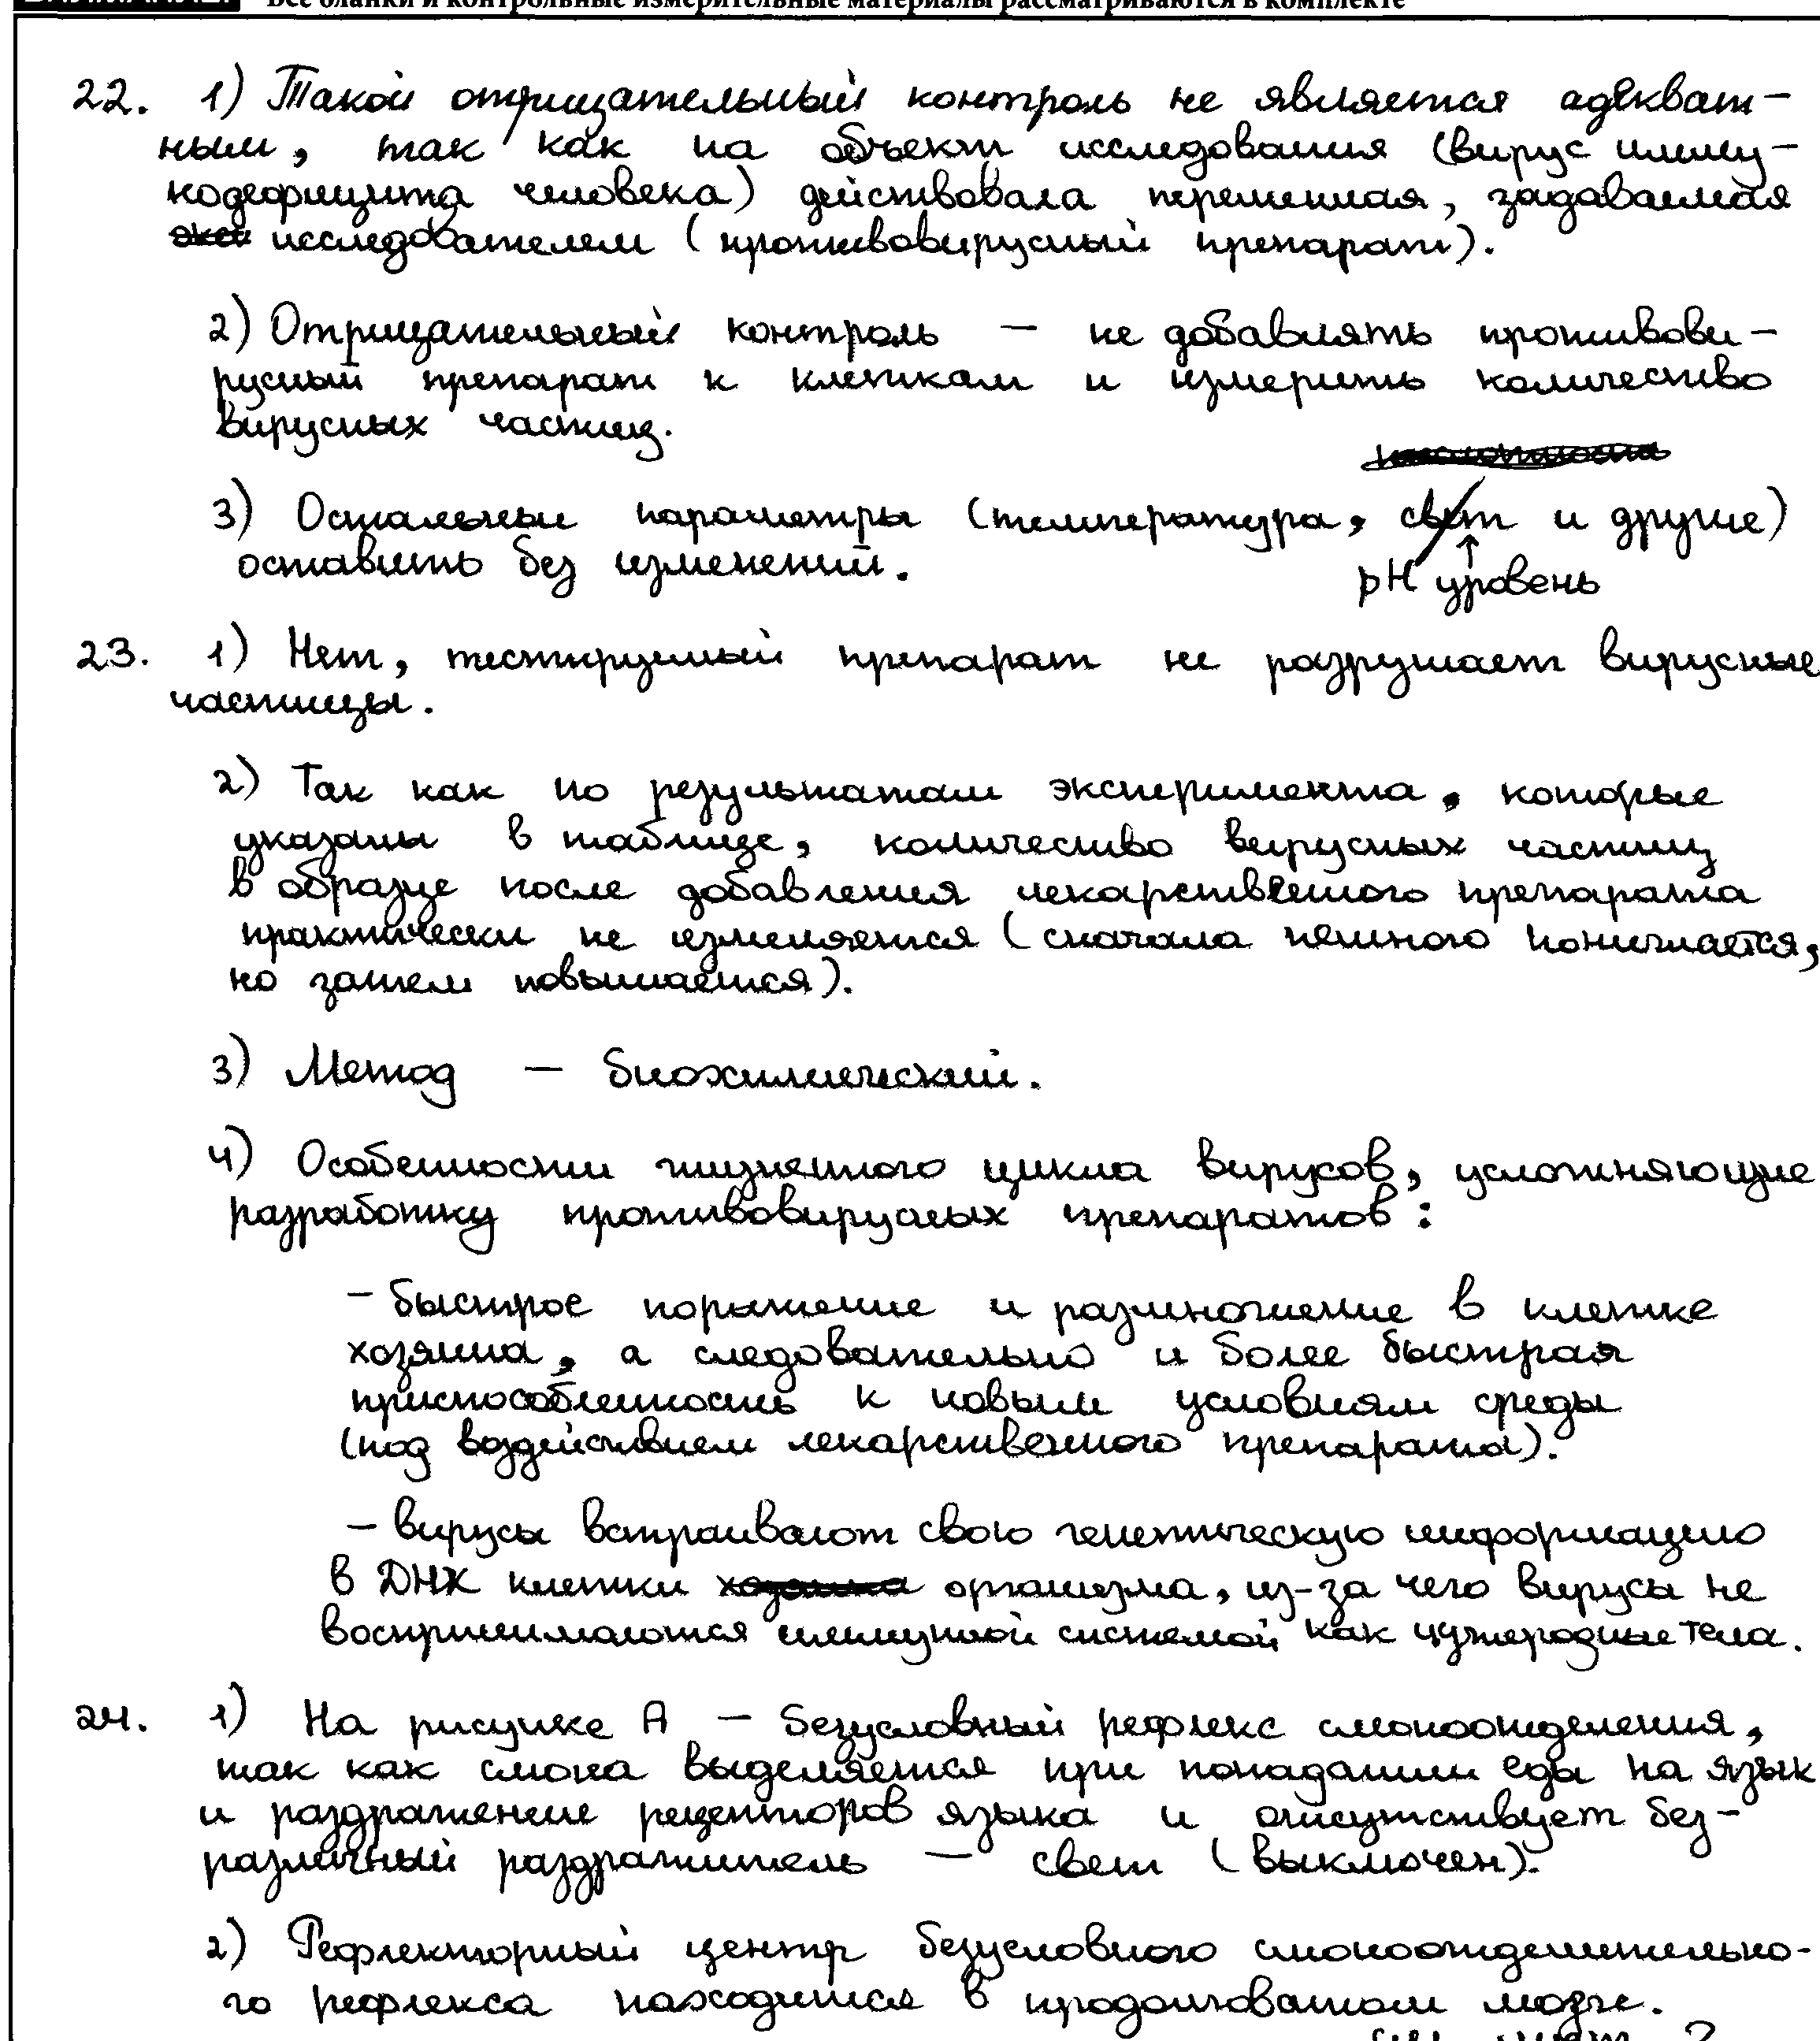 Все бланки и контрольные измерительные материалы рассматриваются в комплекте
22. 1) Такой отрицательный контроль не является адекват-
ным, так как на объект исследования (вирус имму-
нодефицита человека) действовала переменная, задаваемая
исследователем (противовирусный препарат).
2) Отрицательный контроль — не добавлять противови-
русный препарат к клеткам и измерить количество
вирусных частиц.
3) Остальные параметры (температура, свет и другие)
оставить без изменений.
pH уровень
23. 1) Нет, тестируемый препарат не разрушает вирусные
частицы.
2) Так как по результатам эксперимента, которые
указаны в таблице, количество вирусных частиц
в образце после добавления лекарственного препарата
практически не изменяется (сначала немного понижается,
но затем повышается).
3) Метод — биохимический.
4) Особенности жизненного цикла вирусов, усложняющие
разработку противовирусных препаратов:
- быстрое поражение и размножение в клетке
хозяина, а следовательно и более быстрая
приспособленность к новым условиям среды
(под воздействием лекарственного препарата).
- вирусы встраивают свою генетическую информацию
в ДНК клетки организма, из-за чего вирусы не
воспринимаются иммунной системой как чужеродные тела.
24. 1) На рисунке А — безусловный рефлекс слюноотделения,
так как слюна выделяется при попадании еды на язык
и раздражение рецепторов языка и отсутствует без-
различный раздражитель — свет (выключен).
2) Рефлекторный центр безусловного слюноотделительно-
го рефлекса находится в продолговатом мозге.